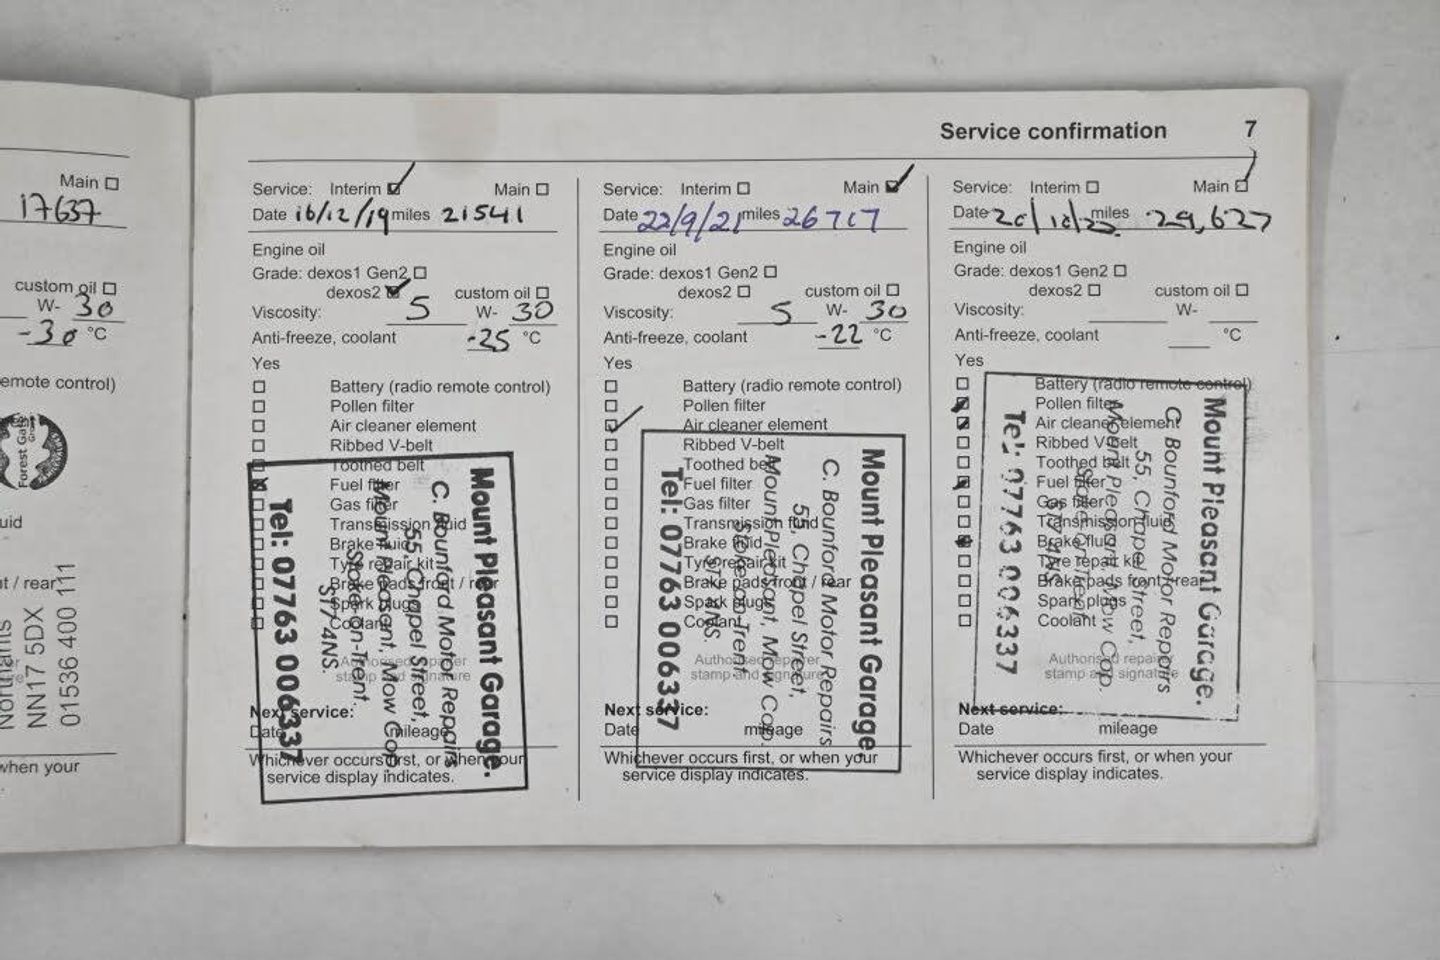 Main
17637
custom oil
W- 30
-30 °C
emote control)
Forest Gate
uid
t / rear
NN17 5DX
01536 400 111
when your
Service confirmation 7
Service: Interim Main
Date 16/12/19 miles 21541
Engine oil
Grade: dexos1 Gen2
dexos2 custom oil
Viscosity: 5 W- 30
Anti-freeze, coolant -25 °C
Yes
Battery (radio remote control)
Pollen filter
Air cleaner element
Ribbed V-belt
Toothed belt
Fuel filter
Gas filter
Transmission fluid
Brake fluid
Tyre repair kit
Brake pads front / rear
Spark plugs
Coolant
Authorised repairer
stamp and signature
Mount Pleasant Garage.
C. Bounford Motor Repairs
55, Chapel Street,
Mount Pleasant, Mow Cop
Stoke-on-Trent.
ST7 4NS.
Tel: 07763 006337
Next service:
Date mileage
Whichever occurs first, or when your
service display indicates.
Service: Interim Main
Date 22/9/21 miles 26717
Engine oil
Grade: dexos1 Gen2
dexos2 custom oil
Viscosity: 5 W- 30
Anti-freeze, coolant -22 °C
Yes
Battery (radio remote control)
Pollen filter
Air cleaner element
Ribbed V-belt
Toothed belt
Fuel filter
Gas filter
Transmission fluid
Brake fluid
Tyre repair kit
Brake pads front / rear
Spark plugs
Coolant
Authorised repairer
stamp and signature
Mount Pleasant Garage.
C. Bounford Motor Repairs
55, Chapel Street,
Mount Pleasant, Mow Cop.
Stoke-on-Trent
ST7 4NS.
Tel: 07763 006337
Next service:
Date mileage
Whichever occurs first, or when your
service display indicates.
Service: Interim Main
Date miles 29,627
Engine oil
Grade: dexos1 Gen2
dexos2 custom oil
Viscosity: W-
Anti-freeze, coolant °C
Yes
Battery (radio remote control)
Pollen filter
Air cleaner element
Ribbed V-belt
Toothed belt
Fuel filter
Gas filter
Transmission fluid
Brake fluid
Tyre repair kit
Brake pads front / rear
Spark plugs
Coolant
Authorised repairer
stamp and signature
Mount Pleasant Garage.
C. Bounford Motor Repairs
55, Chapel Street,
Mount Pleasant, Mow Cop.
Tel: 07763 006337
Next service:
Date mileage
Whichever occurs first, or when your
service display indicates.